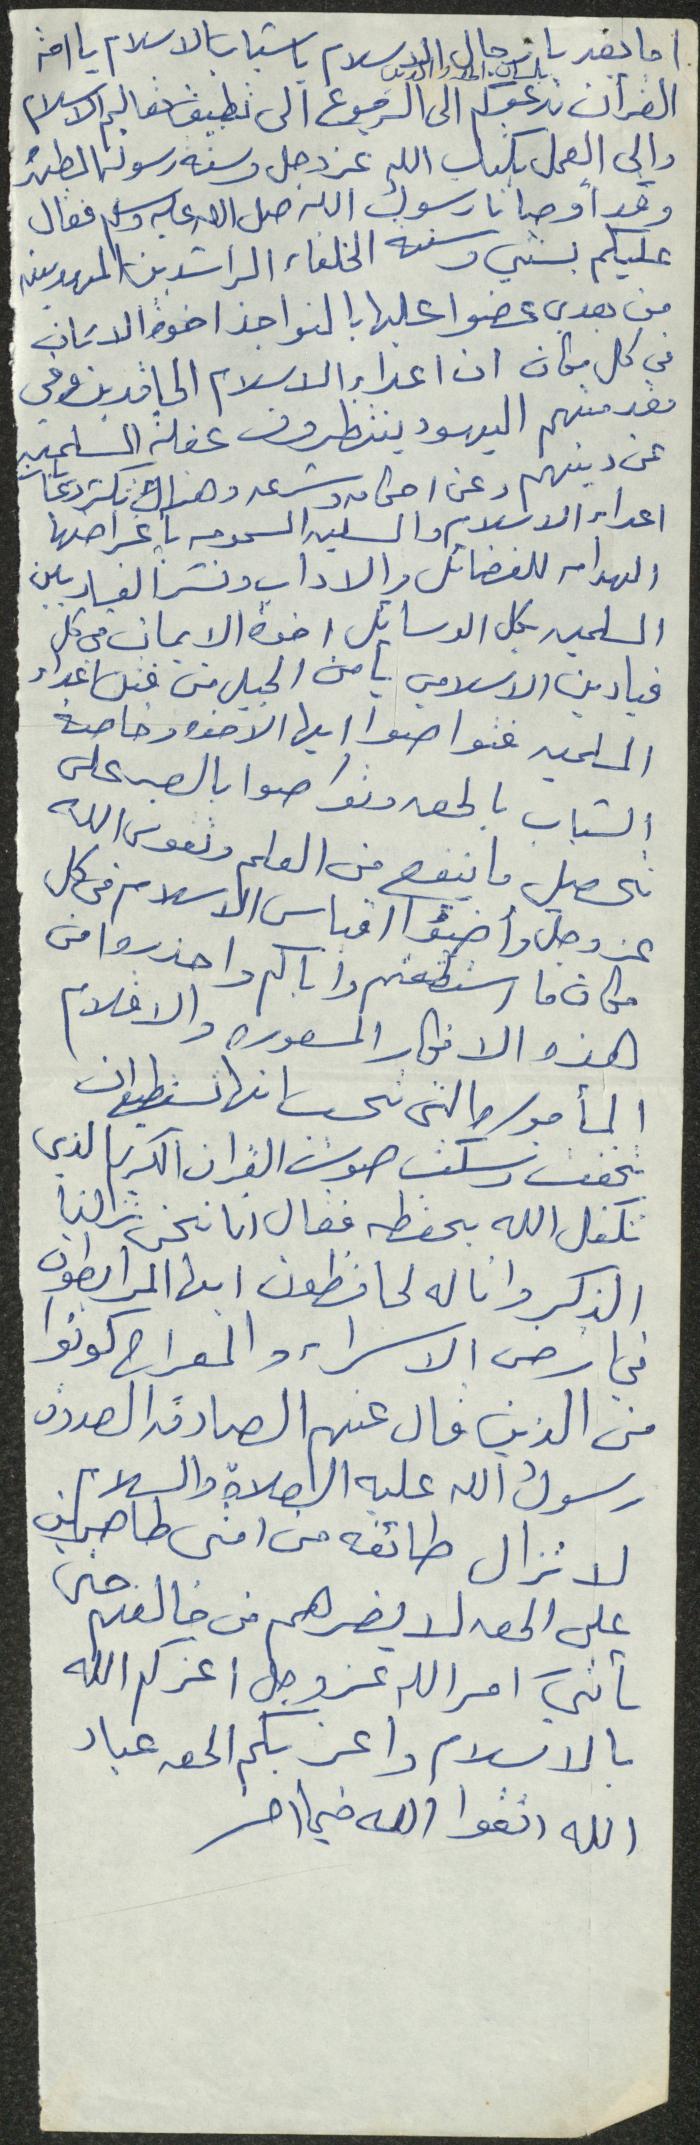 اما بعد يا رجال الاسلام يا شباب الاسلام يا امة
بلسان الحق والدين
القرآن ندعوكم الى الرجوع الى تطبيق تعاليم الاسلام
والى العمل بكتاب الله عز وجل وسنة رسوله المطهرة
وقد أوصانا رسول الله صلى الله عليه وسلم فقال
عليكم بسنتي وسنة الخلفاء الراشدين المهديين
من بعدي عضوا عليها بالنواجذ اخوة الايمان
في كل مكان ان اعداء الاسلام الحاقدين وفي
مقدمتهم اليهود ينتظرون غفلة المسلمين
عن دينهم وعن احكامه وشرعه وهناك تكتلات
اعداء الاسلام والمسلمين المسمومه باغراضها
الهدامه للفضائل والاداب ونشر الفساد بين
المسلمين بكل الوسائل اخوة الايمان في كل
ميادين الاسلامي يا من الجيل من قبل اعداء
المسلمين فتواصوا ايها الاخوه وخاصة
الشباب بالحق وتواصوا بالصبر على
تحصيل ما ينفع من العلم وتقوى الله
عز وجل وأضيئوا اقباس الاسلام في كل
مكان ما استطعتم واياكم واحذروا من
هذه الافكار المسعوره والاقلام
المأجوره التي تحسب انها تستطيع ان
تخفت وتسكت صوت القران الكريم الذي
تكفل الله بحفظه فقال انا نحن نزلنا
الذكر وانا له لحافظون ايها المرابطون
في ارض الاسراء والمعراج كونوا
من الذين قال عنهم الصادق المصدوق
رسول الله عليه الصلاة والسلام
لا تزال طائفه من امتي ظاهرين
على الحق لا يضرهم من خالفهم حتى
يأتي امر الله عز وجل اعزكم الله
بالاسلام واعز بكم الحق عباد
الله اتقوا الله فيما امر